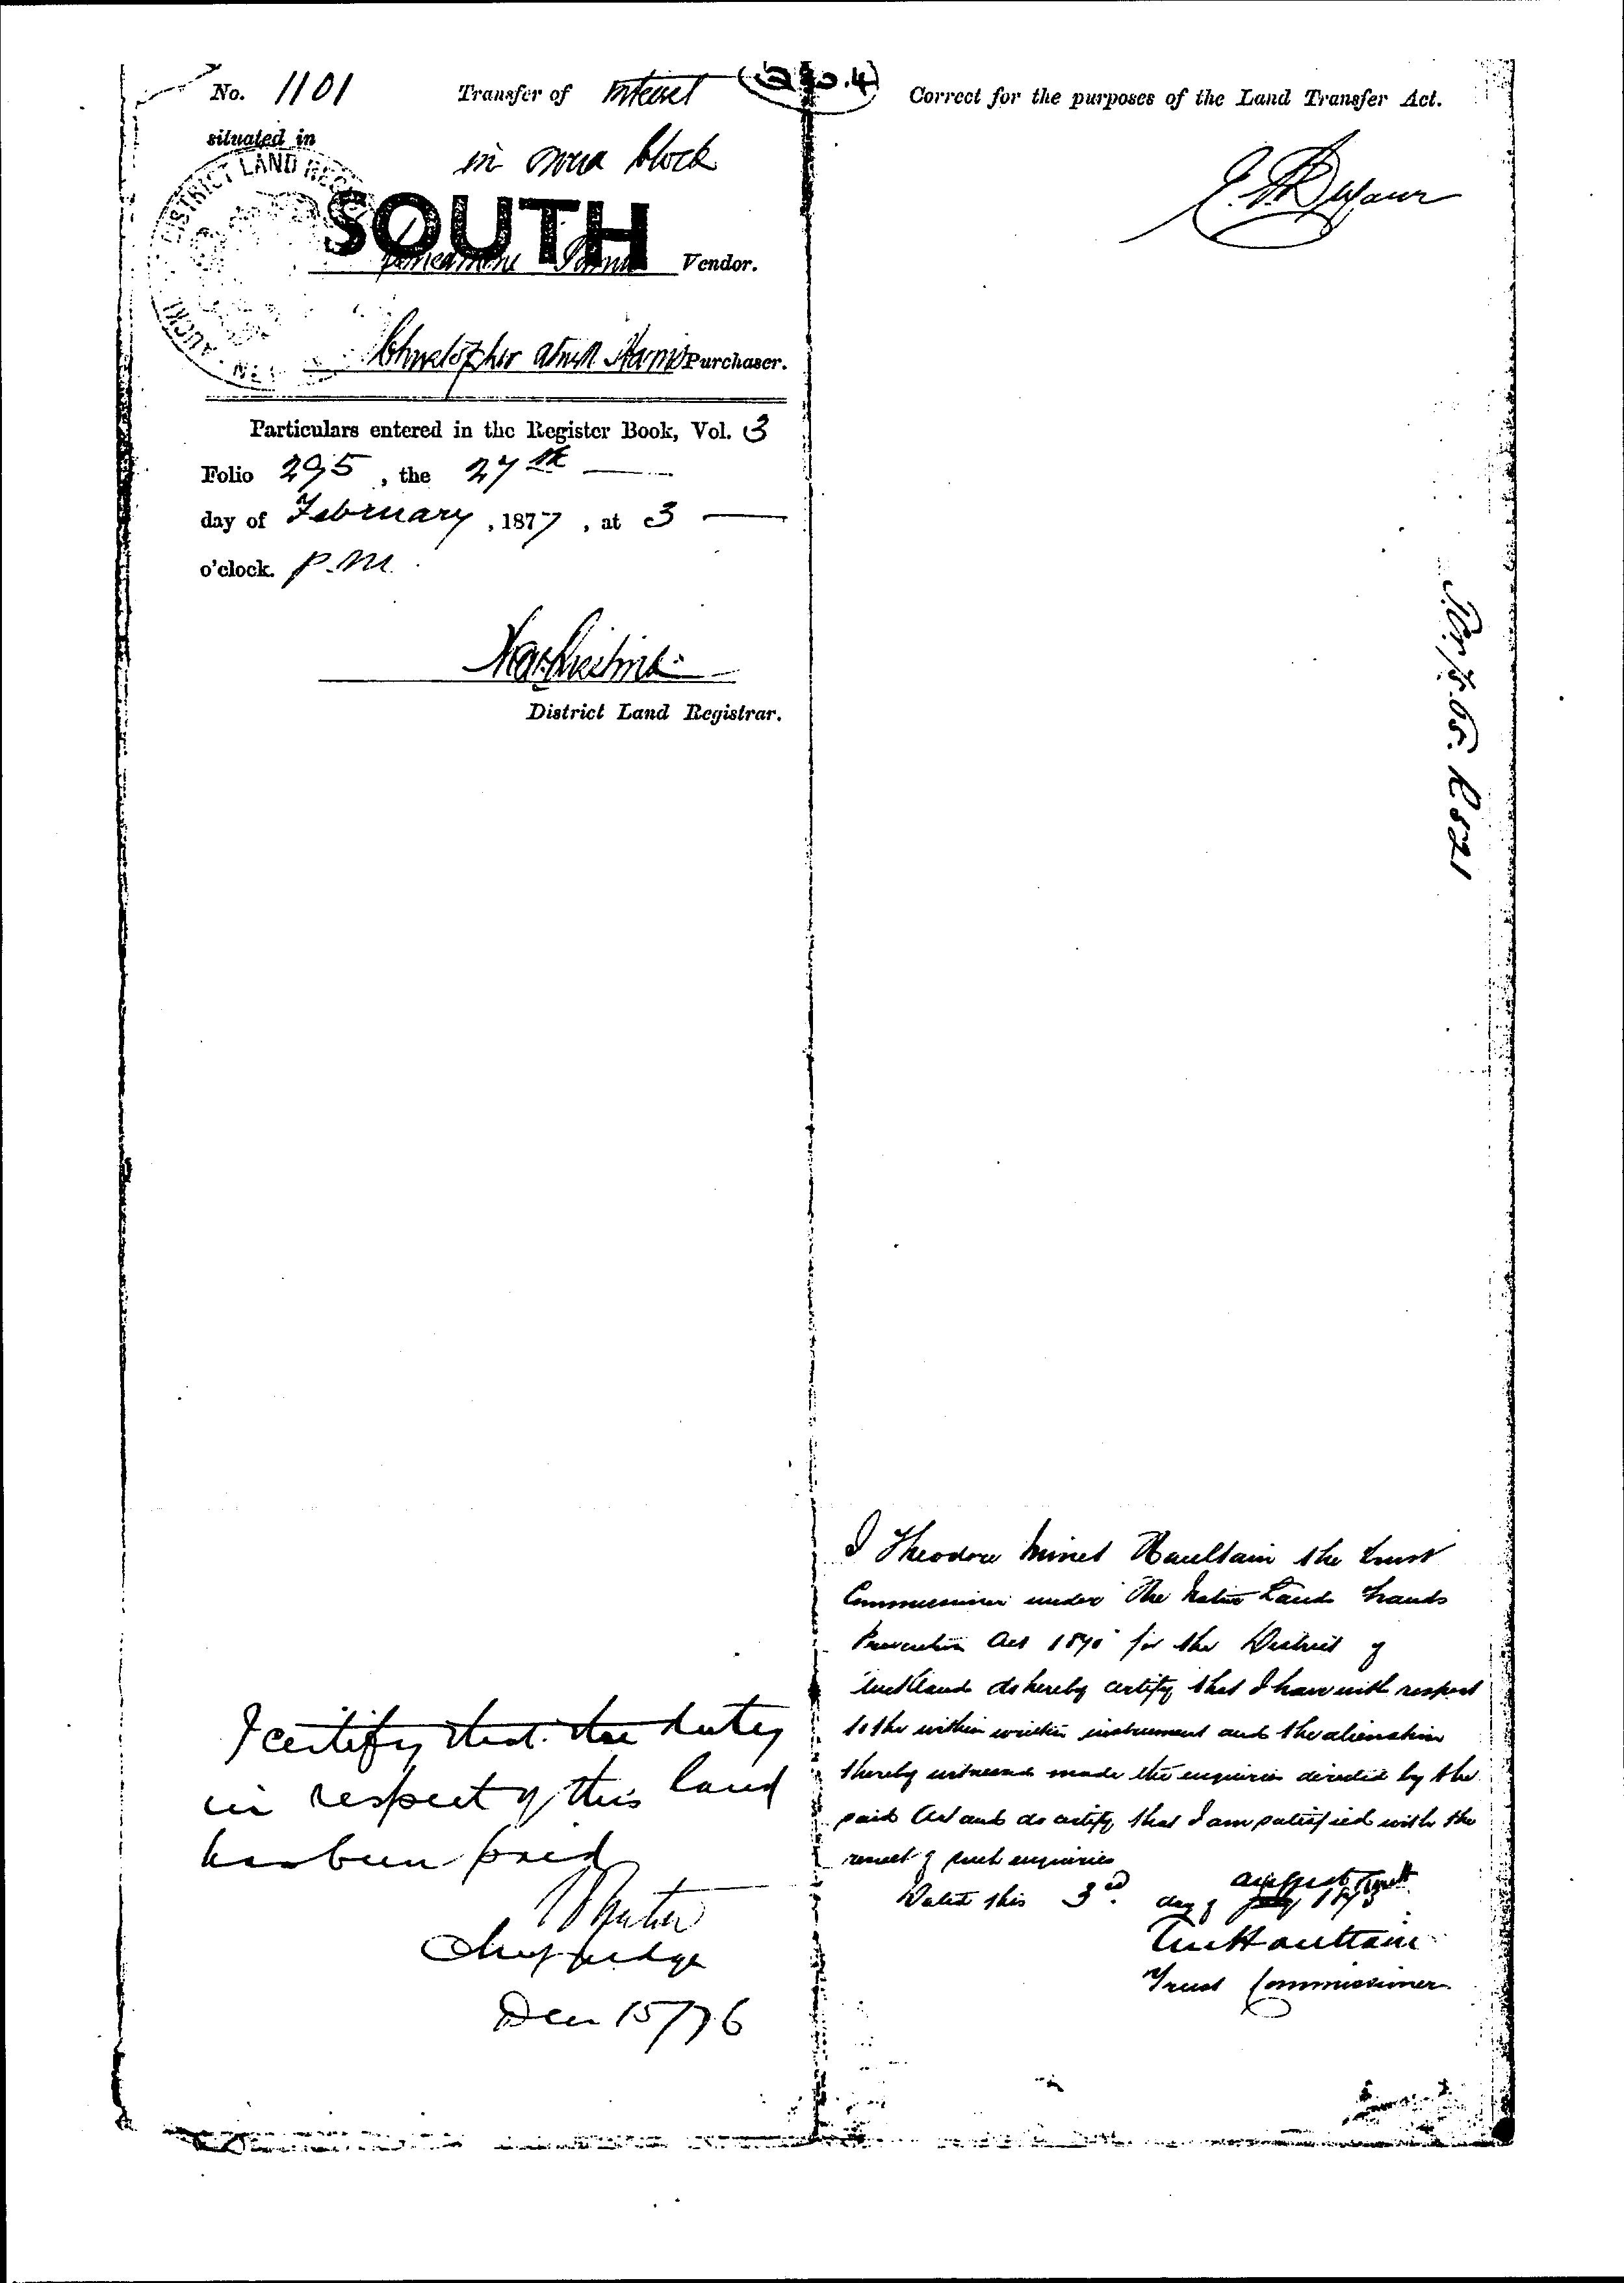 No. 1101 Transfer of Interest
situated in
in Owa block
DISTRICT LAND REG
AUCKL
SOUTH
Vendor.
Christopher Atwell Harris Purchaser.
Particulars entered in the Register Book, Vol. 3
Folio 295, the 27th
day of February, 1877, at 3
o'clock. P.M.
District Land Registrar.
I certify that the duty
in respect of this land
has been paid
Chief Judge
Dec 15/76
Correct for the purposes of the Land Transfer Act.
R 521
I Theodore Minet Haultain the Trust
Commissioner under "The Native Lands Frauds
Prevention Act 1870" for the District of
Auckland do hereby certify that I have with respect
to the within written instrument and the alienation
thereby witnessed made the enquiries directed by the
said Act and do certify that I am satisfied with the
result of such enquiries
Dated this 3rd. day of July August 1875
TM Haultain
Trust Commissioner